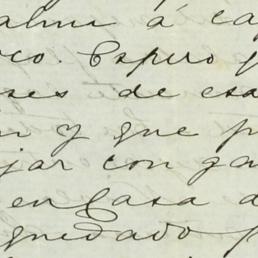 alma á ca
oco. Espero q
ses de esa
y que p
jar con ga
en Casa d
quedado p